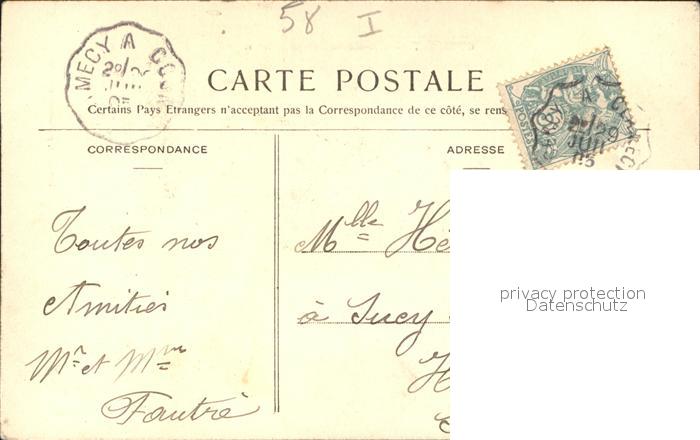 58 I
MECY A CO
CARTE POSTALE
Certains Pays Etrangers n'acceptant pas la Correspondance de ce côté, se rens
CORRESPONDANCE
ADRESSE
Toutes nos
Amitiés
Mr et Mme
Fautré
Mlle Hé
à Lucy
H
privacy protection
Datenschutz